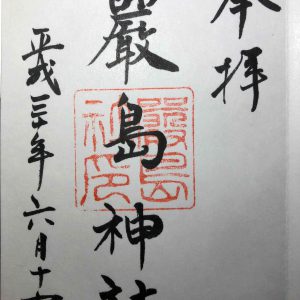 奉拝
嚴島神社
平成三十年六月十
嚴島